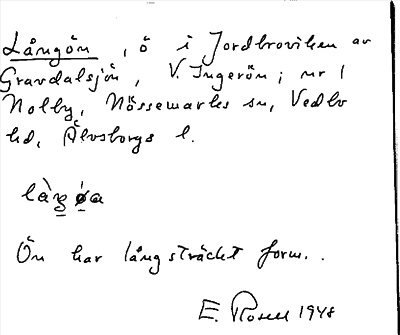 Långön, ö i Jordbroviken av
Gravdalsjön, V. Ingerön; nr 1
Nolby, Nössemarks sn, Vedbo
hd, Älvsborgs l.
Ön har långsträckt form..
E. Rosell 1948